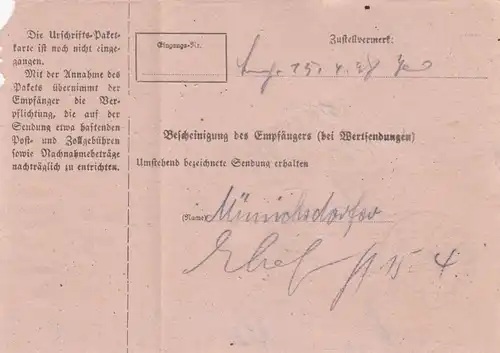 Die Urschrifts-Paket-
karte ist noch nicht einge-
gangen.
Mit der Annahme des
Pakets übernimmt der
Empfänger die Ver-
pflichtung, die auf der
Sendung etwa haftenden
Post- und Zollgebühren
sowie Nachnahmebeträge
nachträglich zu entrichten.
Eingangs-Nr.
Zustellvermerk:
15. 4.
Bescheinigung des Empfängers (bei Wertsendungen)
Umstehend bezeichnete Sendung erhalten
(Name) Münichsdorfer
15. 4.